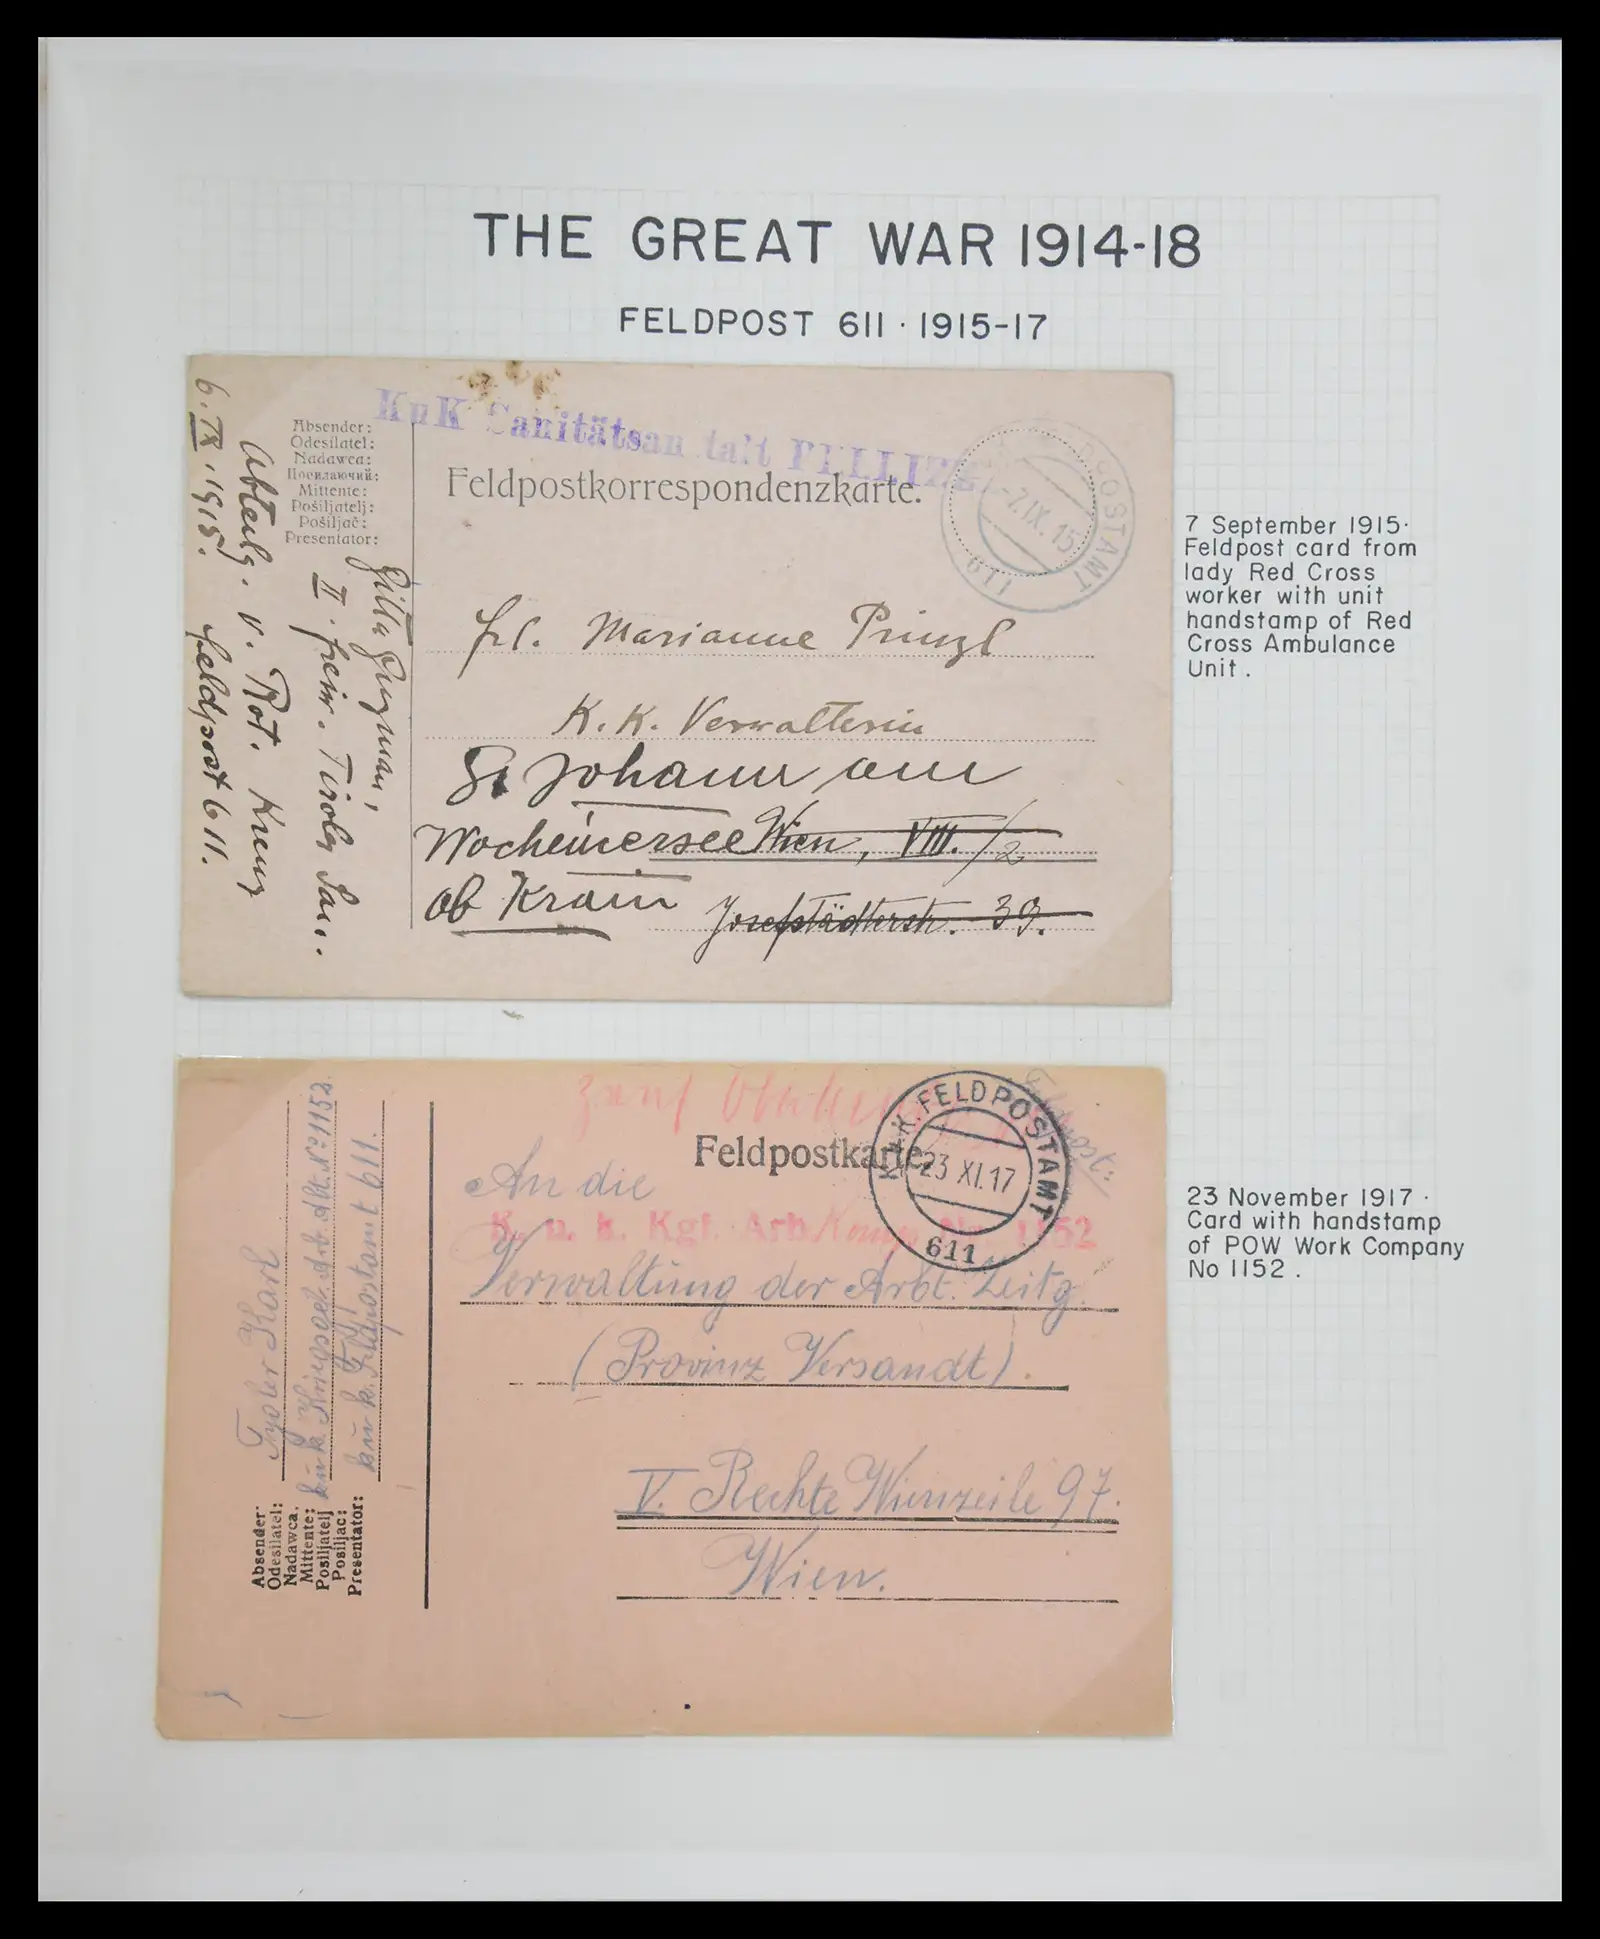 THE GREAT WAR 1914-18
FELDPOST 611 · 1915-17
KuK Sanitätsan talt
Feldpostkorrespondenzkarte.
FELDPOSTAMT
-7.IX.15
611
Absender:
Odesílatel:
Nadawca:
Посилаючий:
Mittente:
Pošiljatelj:
Pošiljač:
Presentator:
II. freiw. Tiroler San.
Abteilg. v. Rot. Kreuz
6.IX.1915. Feldpost 611.
Frl. Marianne Prinzl
K.K. Verwalterin
St Johann am
Wocheinersee Wien, VIII./2
ob Krain Josefstädterstr. 39.
7 September 1915·
Feldpost card from
lady Red Cross
worker with unit
handstamp of Red
Cross Ambulance
Unit.
Feldpostkarte.
K.u.K. FELDPOSTAMT
23 XI.17
611
Feldpost:
An die
K. u. k. Kgf. Arb. Komp. No. 1152
Verwaltung der Arbt. Zeitg.
(Provinz Versandt).
V. Rechte Wienzeile 97.
Wien.
Karl
k.u.k. Kriegsgef. Arb. Abt. No 1152
k.u.k. Feldpostamt 611.
Absender:
Odesilatel:
Nadawca.
Mittente:
Posiljatelj
Posiljac:
Presentator:
23 November 1917 ·
Card with handstamp
of POW Work Company
No 1152.